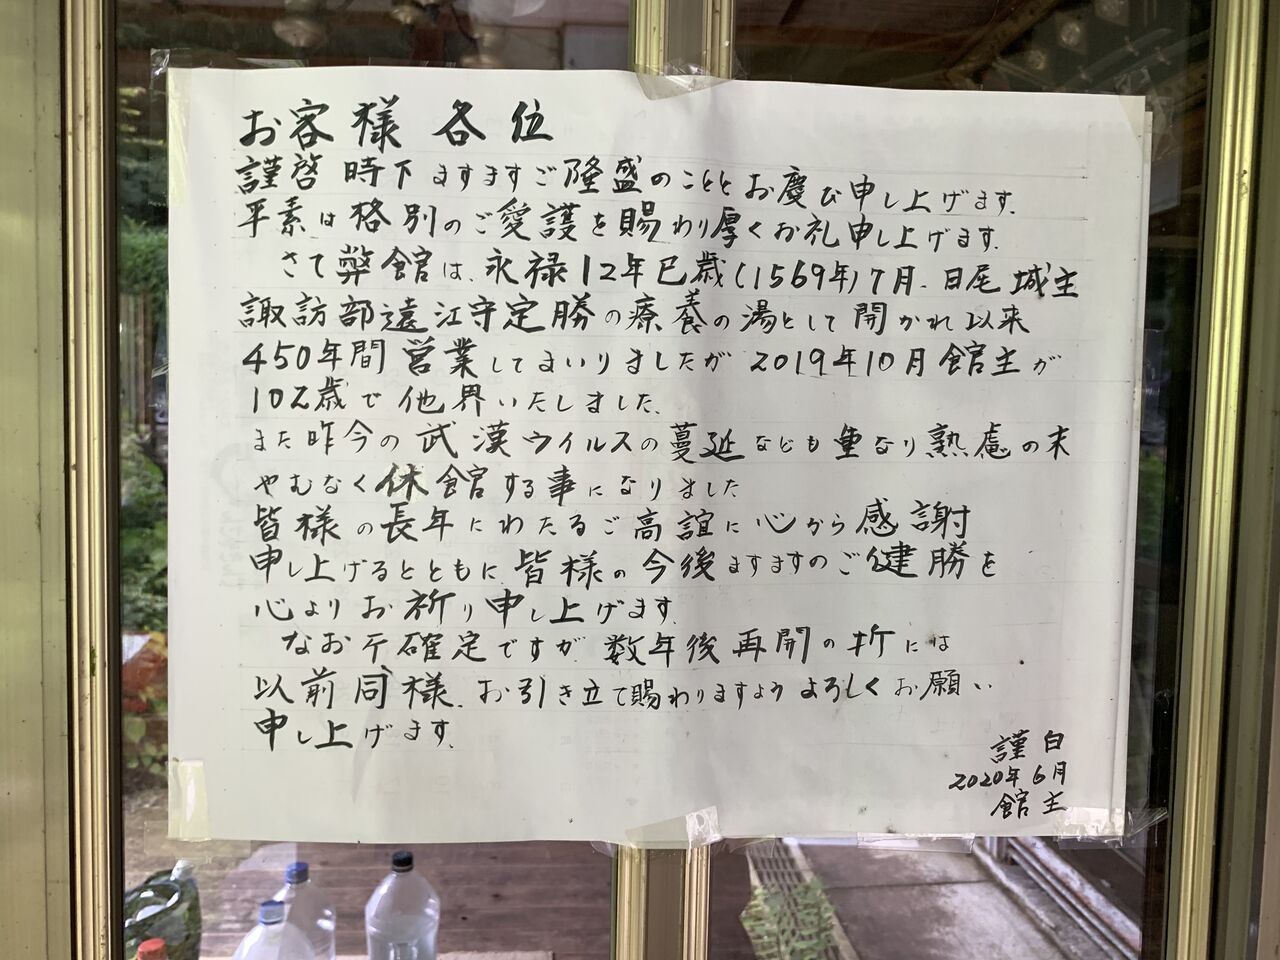 お客様各位
謹啓 時下ますますご隆盛のこととお慶び申し上げます.
平素は格別のご愛護を賜わり厚くお礼申し上げます.
さて弊館は、永禄12年巳歳(1569年)7月、日尾城主
諏訪部遠江守定勝の療養の湯として開かれ以来
450年間営業してまいりましたが2019年10月館主が
102歳で他界いたしました.
また昨今の武漢ウイルスの蔓延なども重なり熟慮の末
やむなく休館する事になりました
皆様の長年にわたるご高誼に心から感謝
申し上げるとともに、皆様の今後ますますのご健勝を
心よりお祈り申し上げます.
なお不確定ですが、数年後再開の折には
以前同様、お引き立て賜わりますようよろしくお願い
申し上げます.
謹白
2020年6月
館主